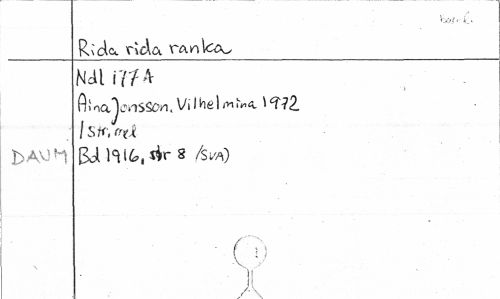 Rida rida ranka
Ndl 177 A
Aina Jonsson, Vilhelmina 1972
1 str, mel
DAUM Bd 1916, str 8 /SVA)